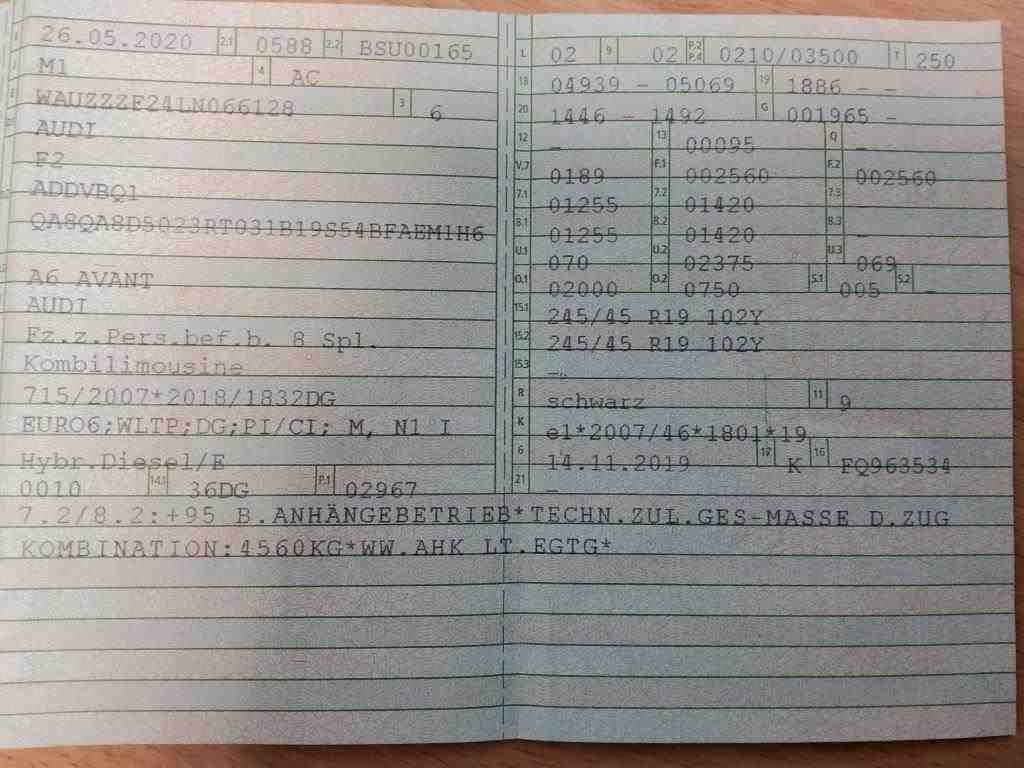 26.05.2020 2.1 0588 2.2 BSU00165
M1 4 AC
WAUZZZF24LN066128 3 6
AUDI
F2
ADDVBQ1
QA8QA8D5023RT031B19S54BFAEM1H6
A6 AVANT
AUDI
Fz.z.Pers.bef.b. 8 Spl.
Kombilimousine
715/2007*2018/1832DG
EURO6;WLTP;DG;PI/CI; M, N1 I
Hybr.Diesel/E
0010 14.1 36DG P.1 02967
L 02 9 02 P.2 P.4 0210/03500 T 250
18 04939 - 05069 19 1886 - -
20 1446 - 1492 G 001965 -
12 - 13 00095 Q -
V.7 0189 F.1 002560 F.2 002560
7.1 01255 7.2 01420 7.3 -
8.1 01255 8.2 01420 8.3 -
U.1 070 U.2 02375 U.3 069
O.1 02000 O.2 0750 S.1 005 S.2 -
15.1 245/45 R19 102Y
15.2 245/45 R19 102Y
15.3 -
R schwarz 11 9
K e1*2007/46*1801*19
6 14.11.2019 17 K 16 FQ963534
21 -
7.2/8.2:+95 B.ANHÄNGEBETRIEB*TECHN.ZUL.GES-MASSE D.ZUG
KOMBINATION:4560KG*WW.AHK LT.EGTG*